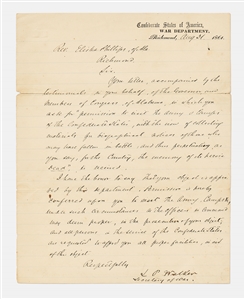 Confederate States of America,
WAR DEPARTMENT.
Richmond, Aug 31. 1861
Rev. Elisha Phillips,
Richmond
Sir
Your letter, accompanied by the
testimonials in your behalf of the Governor and
Members of Congress of Alabama, in which you
ask for permission to visit the Army & Camps
of the Confederate States, with the view of collecting
materials for biographical notices of those who
may have fallen in battle and thus perpetuating as
you say, for the Country, the memory of "its heroic
dead" is received.
I have the honor to say that your object is approved
by this Department & Permission is hereby
conferred upon you to visit the Army, Camps &c
under such circumstances as the officers in command
may deem proper, in the prosecution of your object,
and all persons in the service of the Confederate States
are requested to afford you all proper facilities, in
of the object
Respectfully
L. P. Walker
Secretary of War.